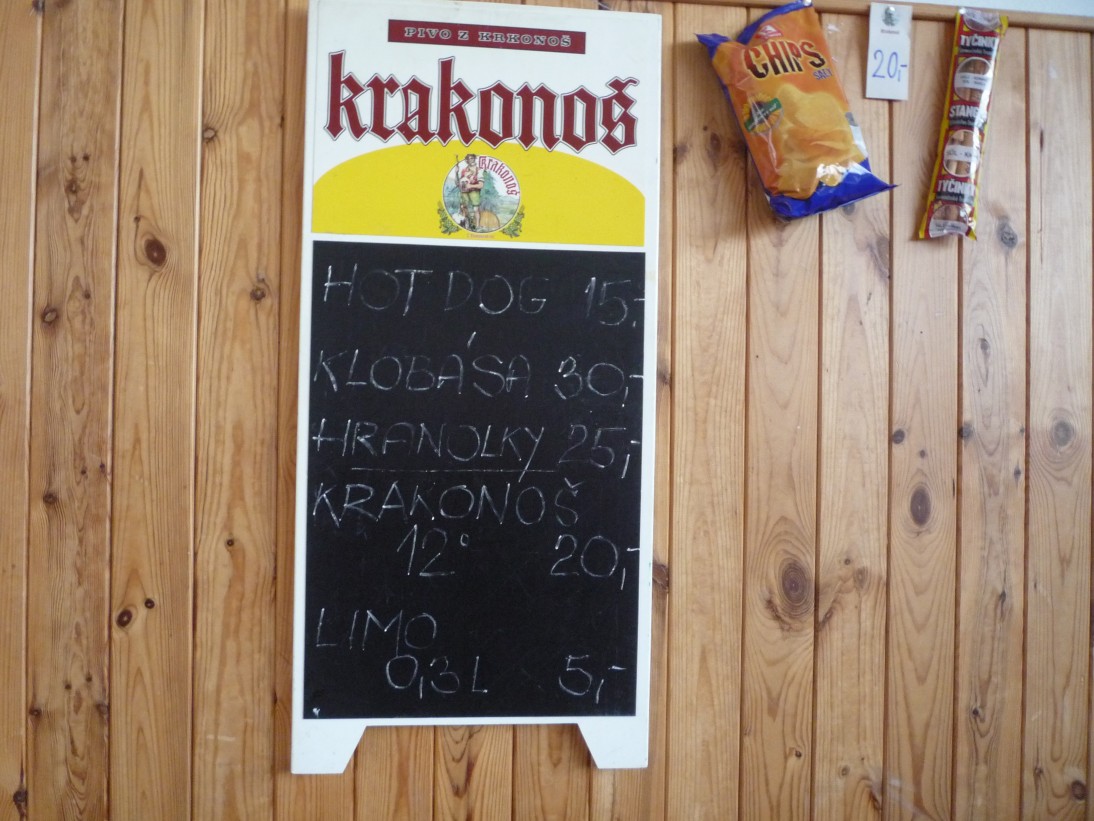 PIVO Z KRKONOŠ
krakonoš
krakonoš
HOT DOG 15,-
KLOBÁSA 30,-
HRANOLKY 25,-
KRAKONOŠ
12° 20,-
LIMO
0,3L 5,-
CHIPS
20,-
TYČINKY
STANG
TYČINK